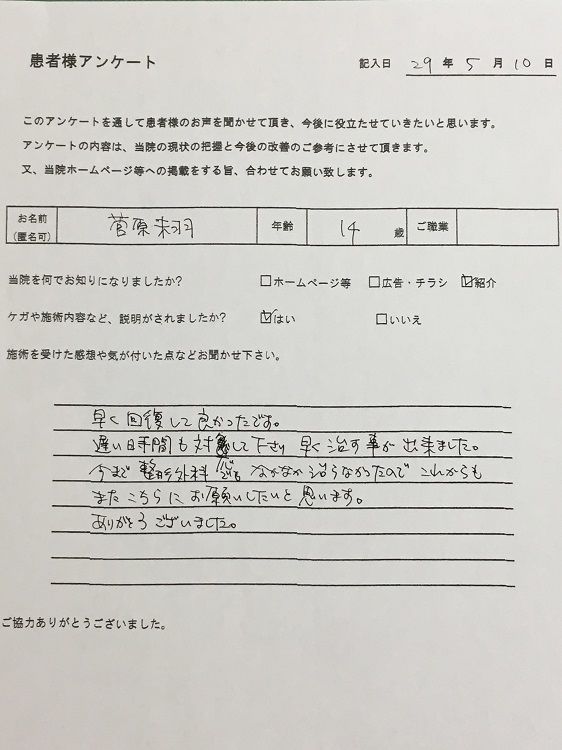 患者様アンケート
記入日 29年5月10日
このアンケートを通して患者様のお声を聞かせて頂き、今後に役立たせていきたいと思います。
アンケートの内容は、当院の現状の把握と今後の改善のご参考にさせて頂きます。
又、当院ホームページ等への掲載をする旨、合わせてお願い致します。
お名前(匿名可) 菅原 年齢 14歳 ご職業
当院を何でお知りになりましたか? □ホームページ等 □広告・チラシ ☑紹介
ケガや施術内容など、説明がされましたか? ☑はい □いいえ
施術を受けた感想や気が付いた点などお聞かせ下さい。
早く回復して良かったです。
遅い時間も対応して下さり早く治す事が出来ました。
今まで整形外科でもなかなか治らなかったのでこれからも
またこちらにお願いしたいと思います。
ありがとうございました。
ご協力ありがとうございました。